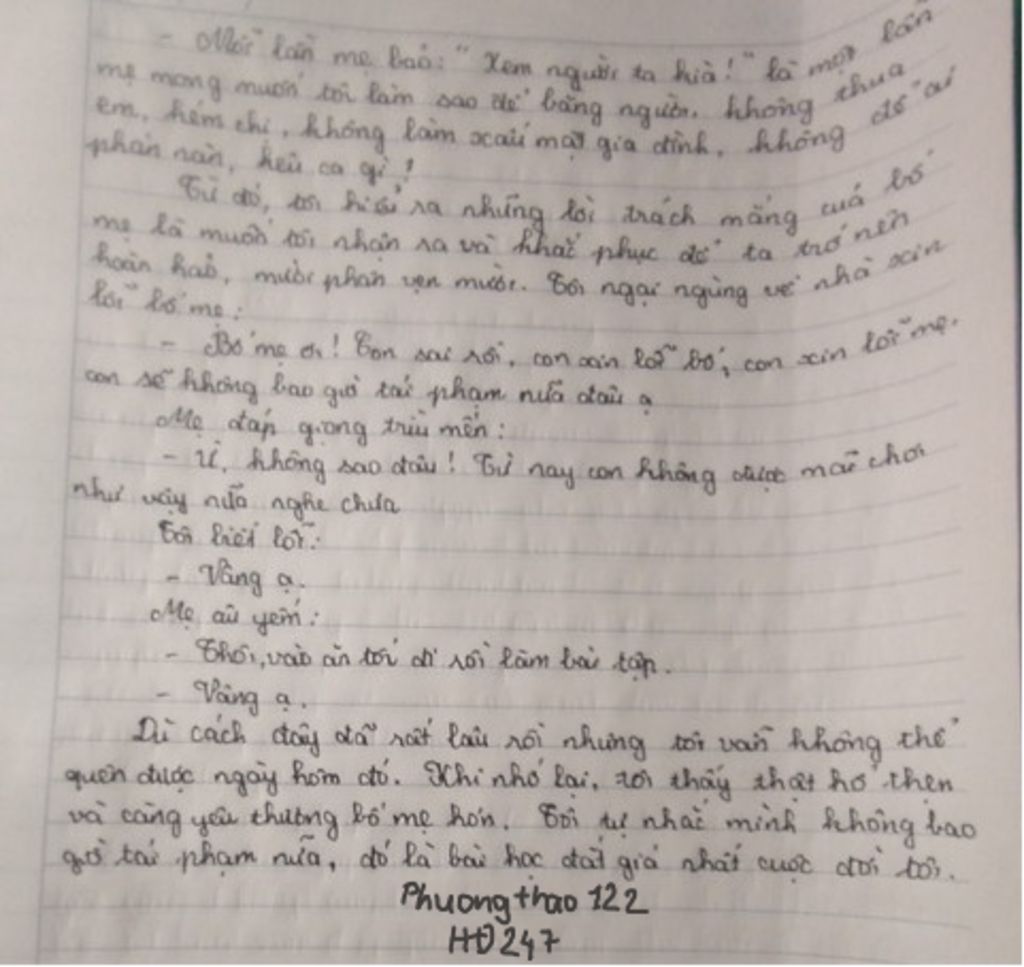 - Mỗi lần mẹ bảo: "Xem người ta kià!" là một lần
mẹ mong muốn tôi làm sao để bằng người, không thua
em, kém chị, không làm xấu mặt gia đình, không để ai
phàn nàn, kêu ca gì!
Từ đó, tôi hiểu ra những lời trách mắng cuả bố
mẹ là muốn tôi nhận ra và khắc phục để ta trở nên
hoàn hảo, mười phân vẹn mười. Tôi ngại ngùng về nhà xin
lỗi bố mẹ:
- Bố mẹ ơi! Con sai rồi, con xin lỗi bố, con xin lỗi mẹ.
con sẽ không bao giờ tái phạm nữa đâu ạ
Mẹ đáp giọng trìu mến:
- Ừ, không sao đâu! Từ nay con không được mải chơi
như vậy nữa nghe chưa
Tôi biết lỗi:
- Vâng ạ.
Mẹ âu yếm:
- Thôi, vào ăn tối đi rồi làm bài tập.
- Vâng ạ.
Dù cách đây đã rất lâu rồi nhưng tôi vẫn không thể
quên được ngày hôm đó. Khi nhớ lại, tôi thấy thật hổ thẹn
và càng yêu thương bố mẹ hơn. Tôi tự nhắc mình không bao
giờ tái phạm nữa, đó là bài học đắt giá nhất cuộc đời tôi.
Phuongthao 122
HĐ247